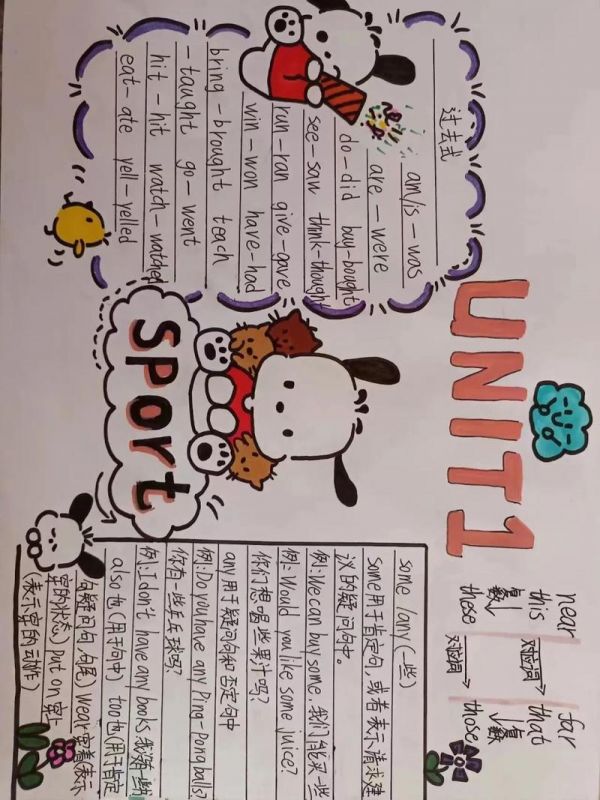 UNIT 1
过去式
am/is-was
are-were
do-did buy-bought
see-saw think-thought
run-ran give-gave
win-won have-had
bring-brought teach
-taught go-went
hit-hit watch-watched
eat-ate yell-yelled
SPort
near far
this 对应词 that
复数 复数
these 对应词 those
some /any(一些)
some用于肯定句,或者表示请求建
议的疑问句中。
例:We can buy some.我们能买一些
例:Would you like some juice?
你们想喝些果汁吗?
any用于疑问句和否定句中
例:Do you have any Ping-Pong balls?
你有一些乒乓球吗?
例:I don't have any books.
also也(用于句中) too也(用于肯定
句疑问句,句尾) wear穿着(表示
穿的状态) put on 穿上
(表示穿的动作)